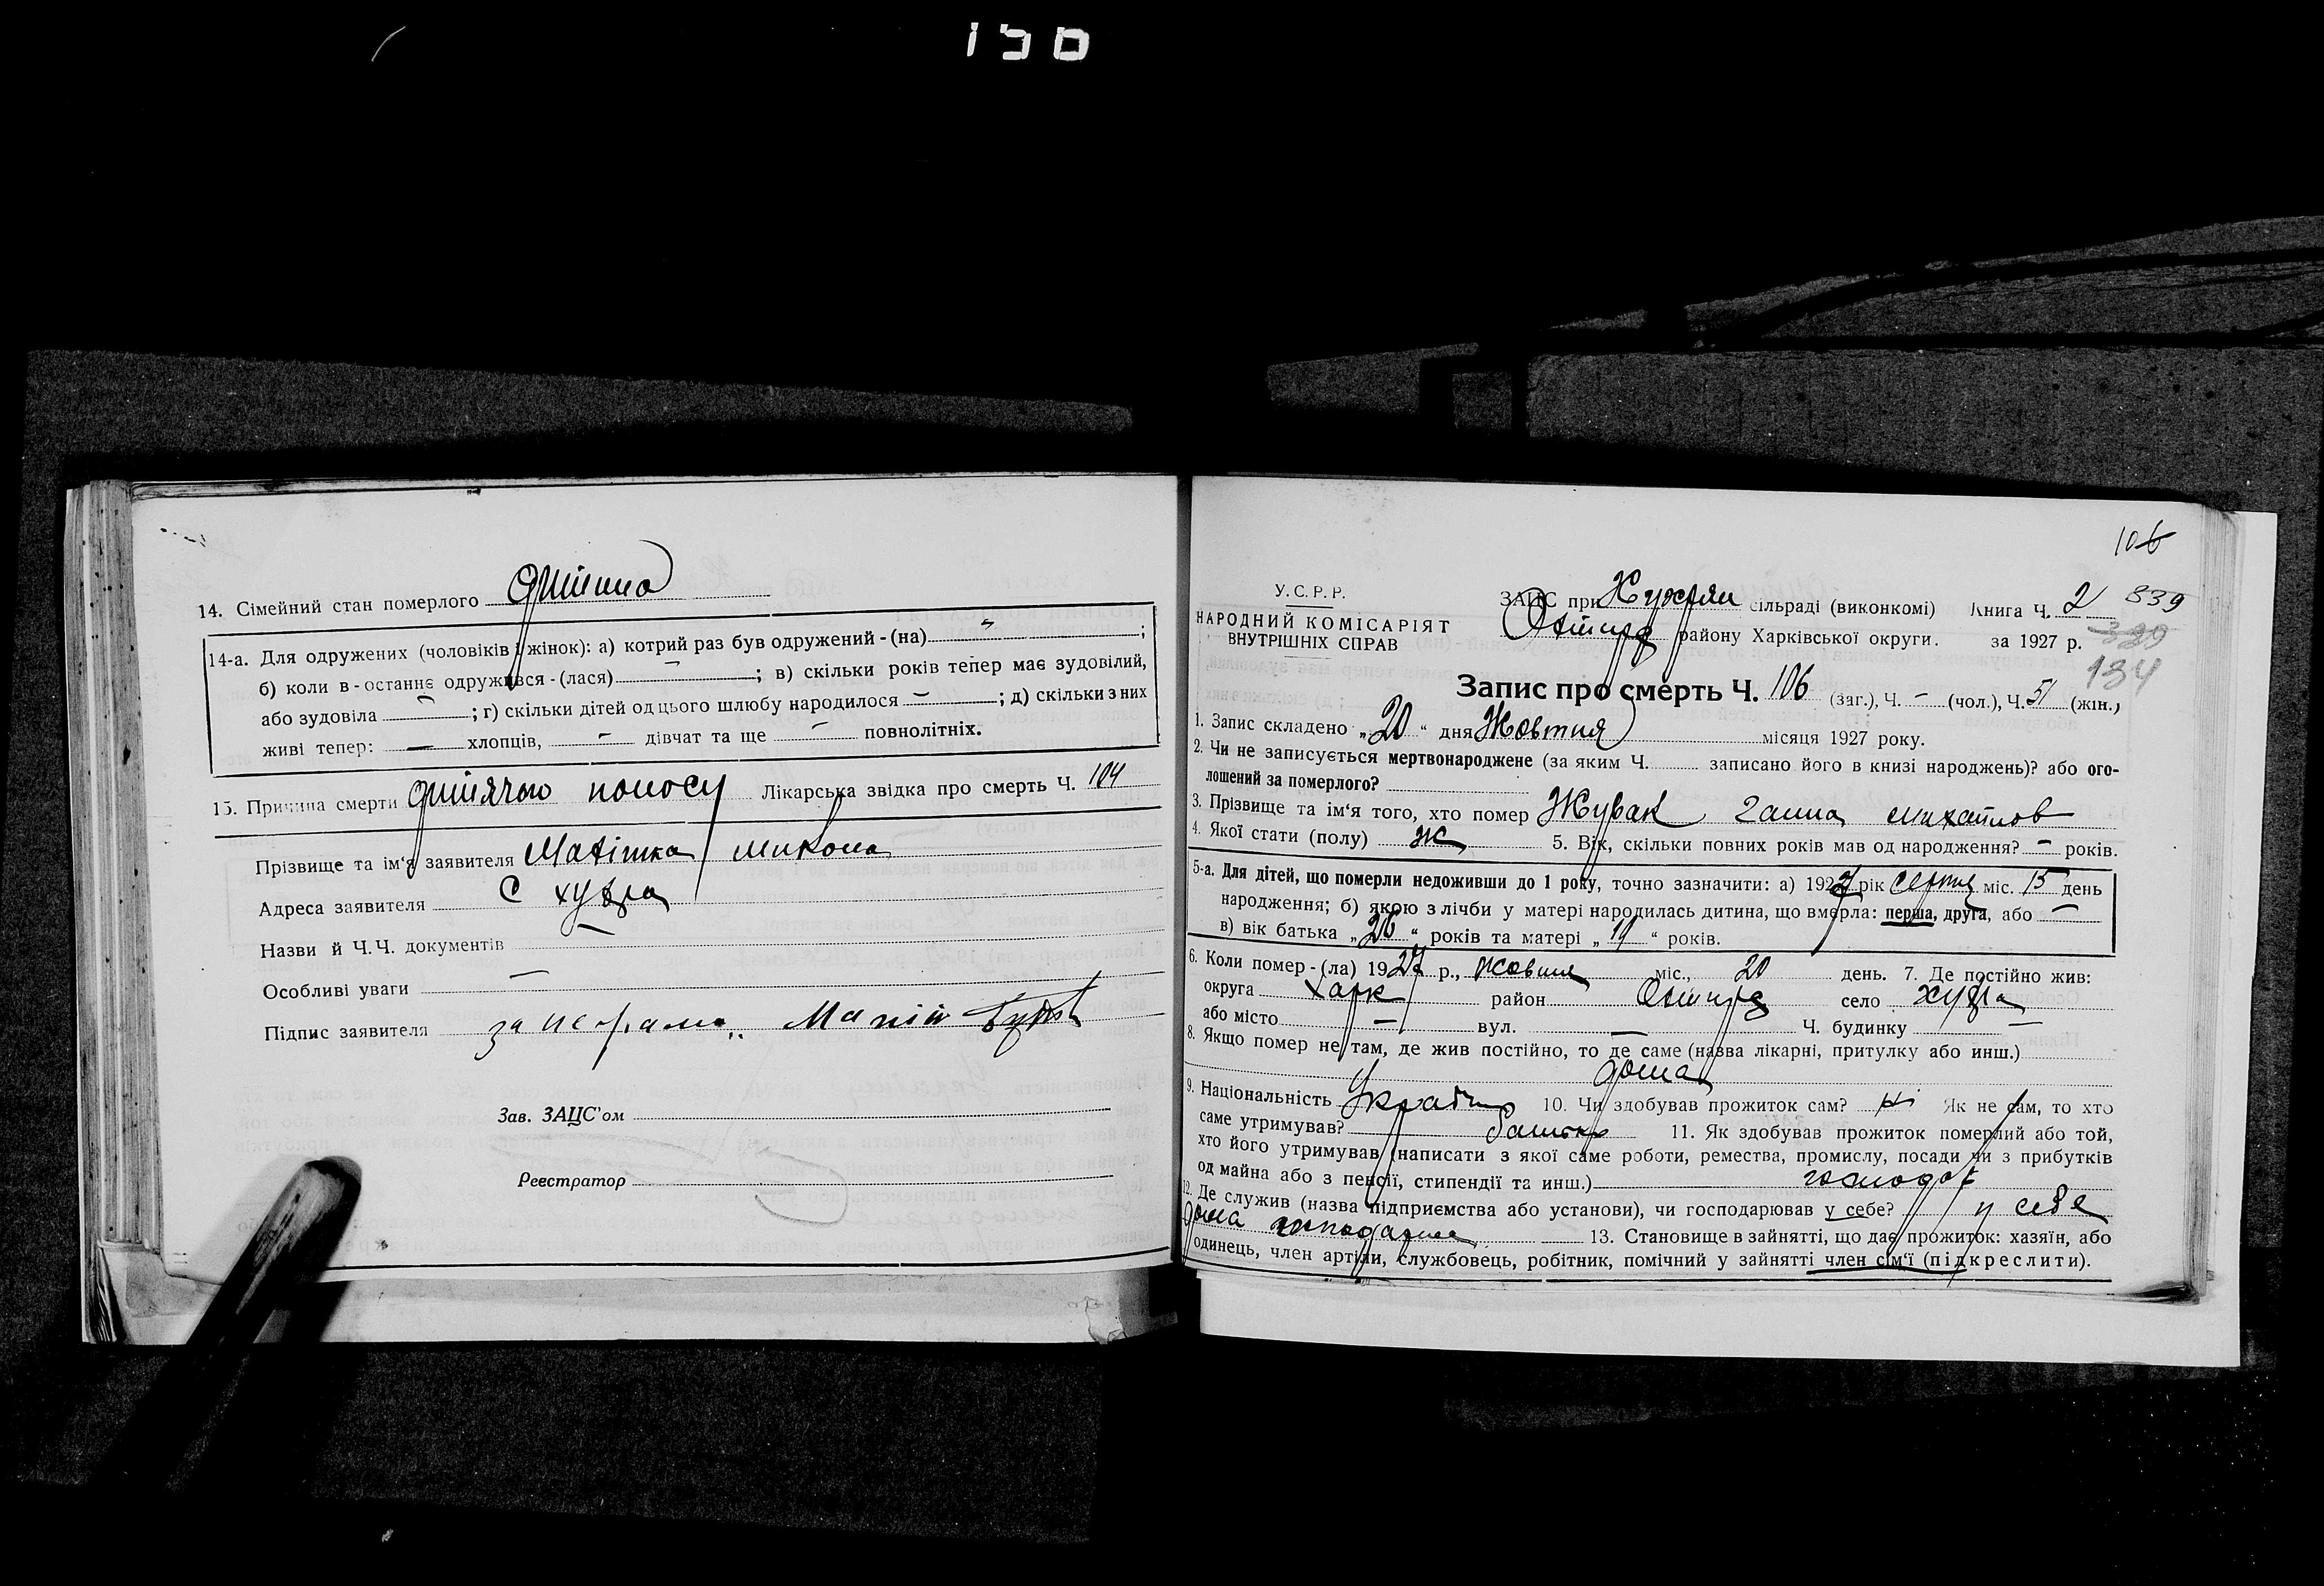 14. Сімейний стан померлого дитина
14-а. Для одружених (чоловіків і жінок): а) котрий раз був одружений-(на) „ ;
б) коли в-останнє одружився-(лася) — ; в) скільки років тепер має зудовілий,
або зудовіла — ; г) скільки дітей од цього шлюбу народилося — ; д) скільки з них
живі тепер: — хлопців, — дівчат та ще — повнолітніх.
15. Причина смерти поносу Лікарська звідка про смерть Ч. 104
Прізвище та ім'я заявителя Микола
Адреса заявителя С
Назви й Ч.Ч. документів —
Особливі уваги —
Підпис заявителя за
Зав. ЗАЦС'ом
Реєстратор
106
У.С.Р.Р.
НАРОДНИЙ КОМІСАРІЯТ
ВНУТРІШНІХ СПРАВ
ЗАЦС при сільраді (виконкомі) Книга Ч. 2 839
району Харківської округи. за 1927 р.
134
Запис про смерть Ч. 106 (заг.), Ч. — (чол.), Ч. 51 (жін.)
1. Запис складено „20" дня Жовтня місяця 1927 року.
2. Чи не записується мертвонароджене (за яким Ч. записано його в книзі народжень)? або ого-
лошений за померлого?
3. Прізвище та ім'я того, хто помер Жувак Ганна Михайлов
4. Якої стати (полу) Ж 5. Вік, скільки повних років мав од народження? — років.
5-а. Для дітей, що померли недоживши до 1 року, точно зазначити: а) 1927 рік серпня міс. 15 день
народження; б) якою з лічби у матері народилась дитина, що вмерла: перша, друга, або —
в) вік батька „26" років та матері „19" років.
6. Коли помер-(ла) 1927 р., жовтня міс., 20 день. 7. Де постійно жив:
округа Харк район село
або місто — вул. — Ч. будинку —
8. Якщо помер не там, де жив постійно, то де саме (назва лікарні, притулку або инш.)
дома
9. Національність 10. Чи здобував прожиток сам? ні Як не сам, то хто
саме утримував? батько 11. Як здобував прожиток померлий або той,
хто його утримував (написати з якої саме роботи, ремества, промислу, посади чи з прибутків
од майна або з пенсії, стипендії та инш.) господар
12. Де служив (назва підприємства або установи), чи господарював у себе? у себе
дома 13. Становище в зайнятті, що дає прожиток: хазяїн, або
одинець, член артіли, службовець, робітник, помічний у зайнятті член сім'ї (підкреслити).